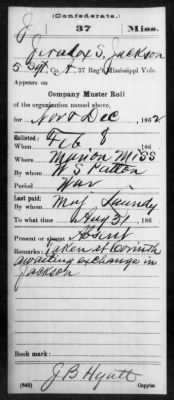 (Confederate.)
J 37 Miss.
Jackson
5 Sgt, Co. , 37 Reg't Mississippi Vols.
Appears on
Company Muster Roll
of the organization named above,
for Nov & Dec, 1862
Enlisted:
When Feb 8 186
Where Marion Miss
By whom W S Patton
Period War
Last paid:
By whom Maj
To what time Aug 31, 186
Present or absent Absent
Remarks: Taken at Corinth
awaiting exchange in
Jackson
Book mark:
J B Hyatt
(642) Copyist.